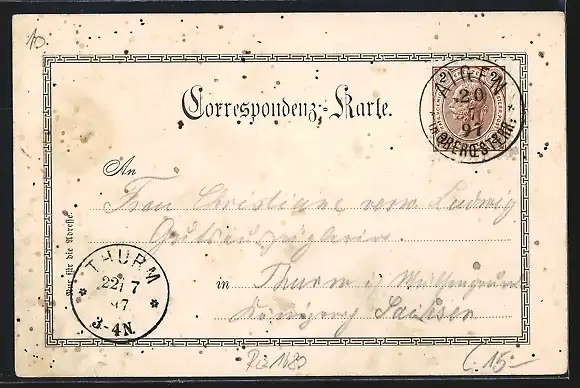 10
2 2
AIGEN
20
7
97
* IN OBEROESTERR: *
Correspondenz-Karte.
An
Frau Christiane verw. Ludwig
Gutsauszüglerin
in Thurm i/ Mülsengrund
Königreich Sachsen
Nur für die Adresse.
THURM
22/ 7
97
* *
3-4N